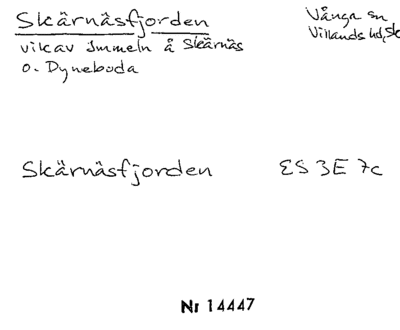 Skärnäsfjorden
Vånga sn
vik av Immeln å Skärnäs
Villands hd, Sk
o. Dyneboda
Skärnäsfjorden ES 3E 7c
Nr 14447